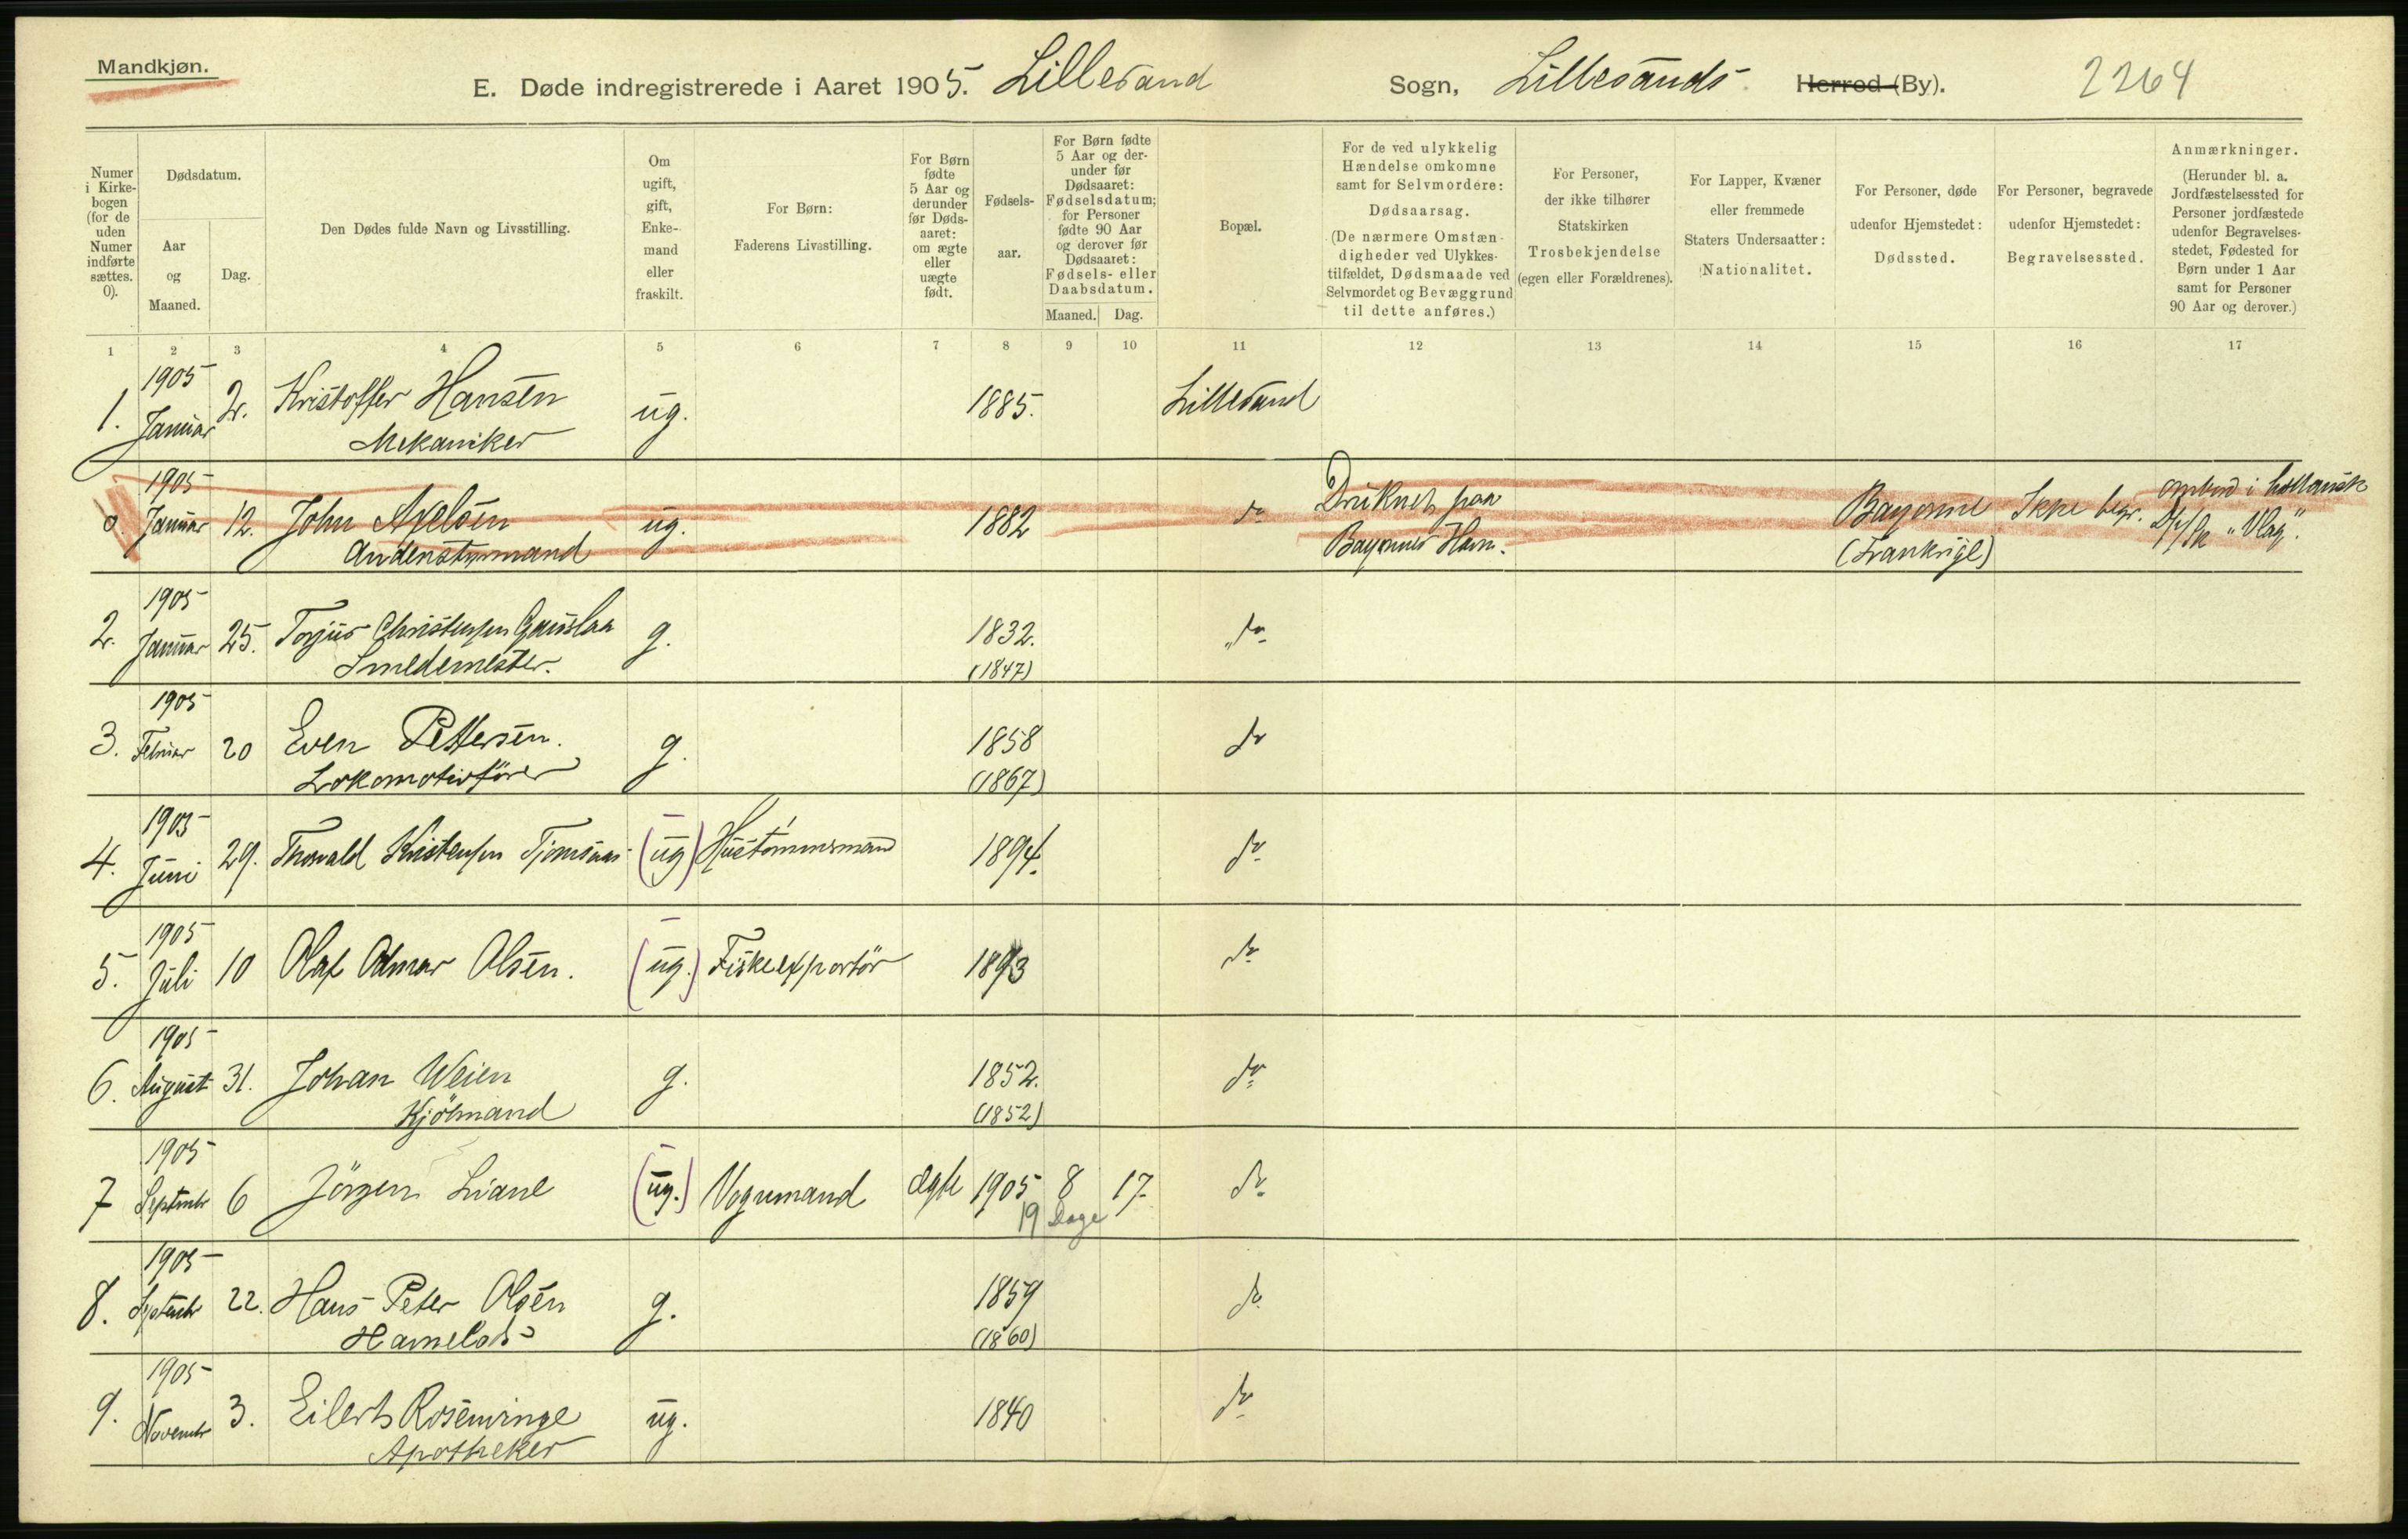 Mandkjøn.
E. Døde indregistrerede i Aaret 1905. Lillesand Sogn, Lillesands Herred (By). 2264
Numer i Kirkebogen (for de uden Numer indførte sættes. 0).
Dødsdatum.
Aar og Maaned.
Dag.
Den Dødes fulde Navn og Livsstilling.
Om ugift, gift, Enkemand eller fraskilt.
For Børn: Faderens Livsstilling.
For Børn fødte 5 Aar og derunder før Dødsaaret: om ægte eller uægte født.
Fødselsaar.
For Børn fødte 5 Aar og derunder før Dødsaaret: Fødselsdatum; for Personer fødte 90 Aar og derover før Dødsaaret: Fødsels- eller Daabsdatum.
Maaned. Dag.
Bopæl.
For de ved ulykkelig Hændelse omkomne samt for Selvmordere: Dødsaarsag. (De nærmere Omstændigheder ved Ulykkestilfældet, Dødsmaade ved Selvmordet og Bevæggrund til dette anføres.)
For Personer, der ikke tilhører Statskirken Trosbekjendelse (egen eller Forældrenes).
For Lapper, Kvæner eller fremmede Staters Undersaatter: Nationalitet.
For Personer, døde udenfor Hjemstedet: Dødssted.
For Personer, begravede udenfor Hjemstedet: Begravelsessted.
Anmærkninger. (Herunder bl. a. Jordfæstelsessted for Personer jordfæstede udenfor Begravelsesstedet, Fødested for Børn under 1 Aar samt for Personer 90 Aar og derover.)
1 2 3 4 5 6 7 8 9 10 11 12 13 14 15 16 17
1905
1. Januar 2. Kristoffer Hansen ug. 1885. Lillesand
Mekaniker
1905
0. Januar 12. John Axelsen ug. 1882 do Druknet paa Bayonne Ikke begr. ombord i hollansk
Andenstyrmand Bayonnes Havn. (Frankrige) "Vlag".
1905
2. Januar 25. Torjus Christensen Gauslaa g. 1832. do
Smedemester. (1847)
1905
3. Februar 20 Even Pettersen. g. 1858 do
Lokomotivfører (1867)
1905
4. Juni 29. Thorvald Kristensen Tjomsaas (ug) Hustømmermand 1894. do
1905
5. Juli 10 Olaf Odmar Olsen. (ug.) Fiskeexportör 1893 do
1905
6. August 31. Johan Weien g. 1852. do
Kjölmand (1852)
1905
7 September 6 Jörgen Liane (ug.) Vognmand ægte 1905 8 17. do
19 Dage
1905
8. September 22. Hans Peter Olsen g. 1859 do
Havnelods (1860)
1905
9. November 3. Eilert Rosenvinge ug. 1840 do
Apotheker